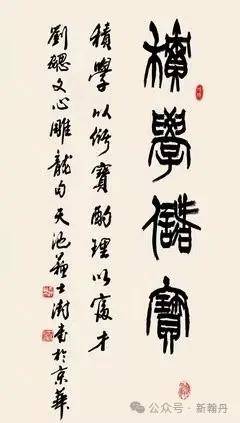 積學儲寶
積學以儲寶酌理以富才
劉勰文心雕龍句天池蘇士澍書於京華
公众号·新翰丹